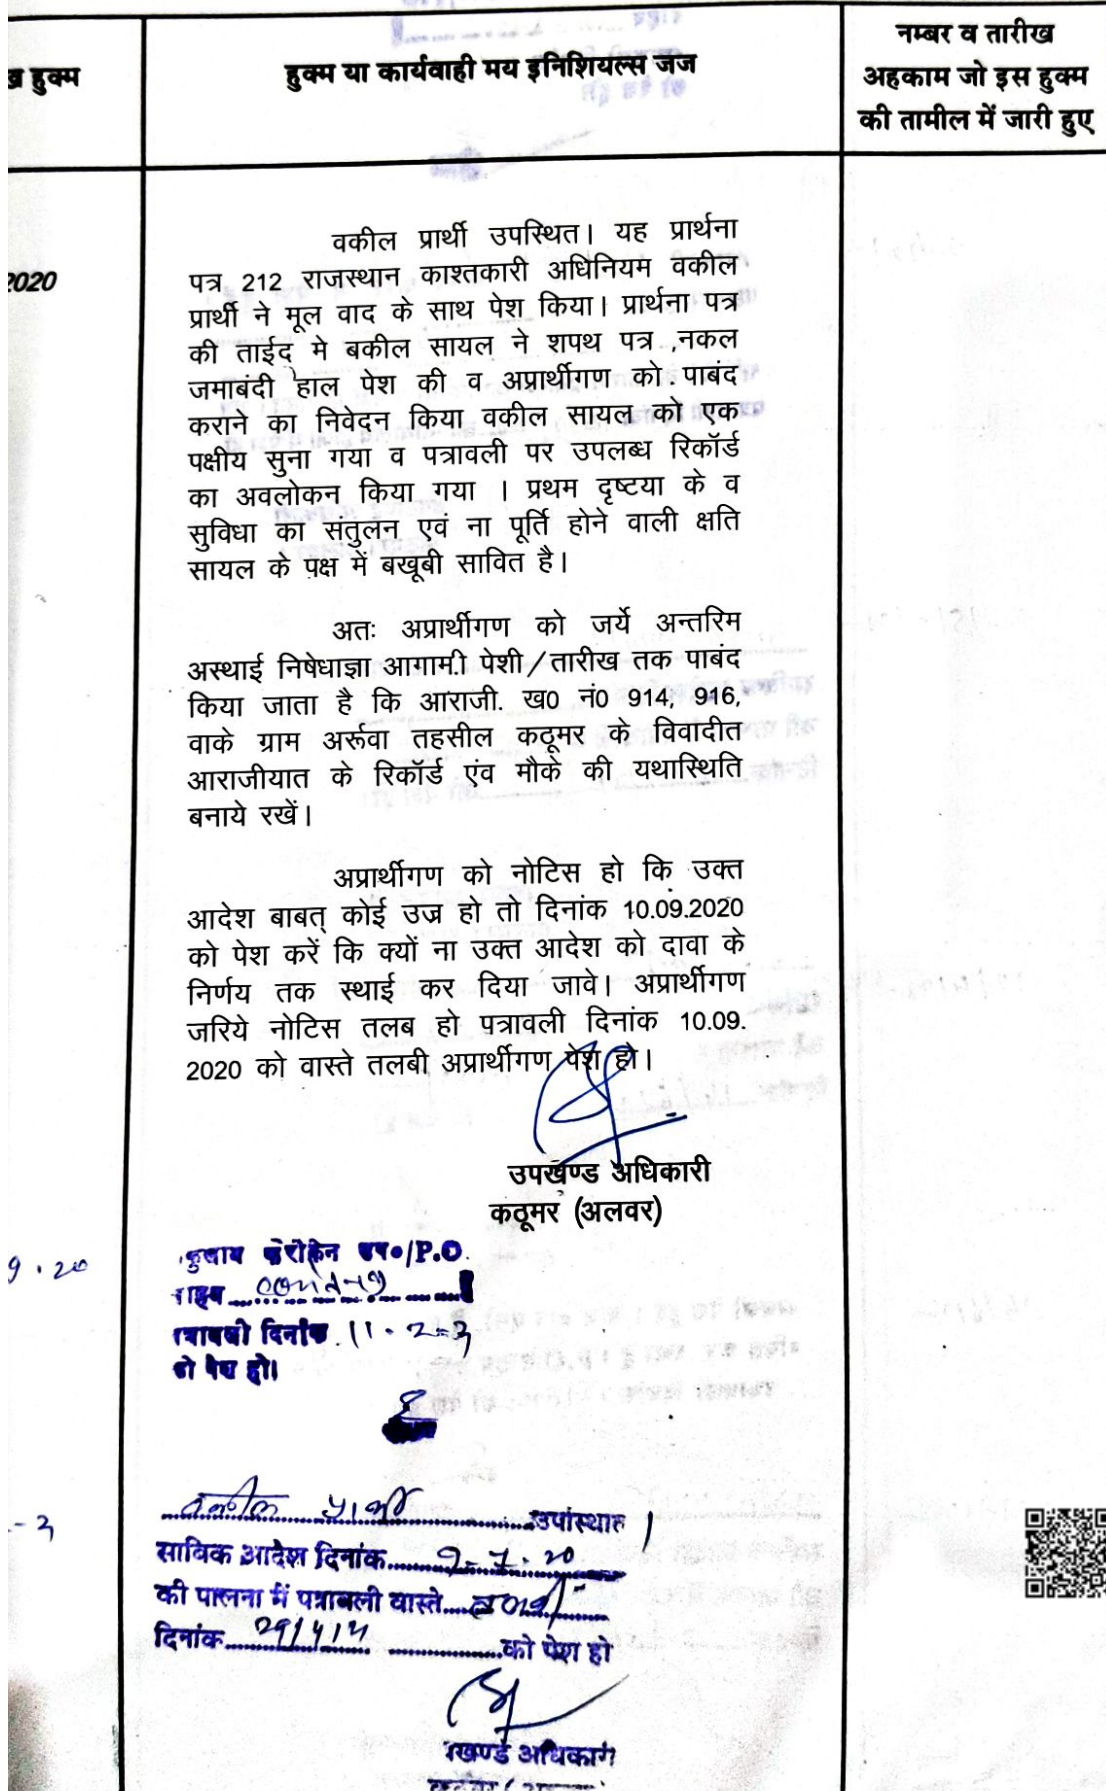 हुक्म
हुक्म या कार्यवाही मय इनिशियल्स जज
नम्बर व तारीख
अहकाम जो इस हुक्म
की तामील में जारी हुए
2020
वकील प्रार्थी उपस्थित। यह प्रार्थना
पत्र 212 राजस्थान काश्तकारी अधिनियम वकील
प्रार्थी ने मूल वाद के साथ पेश किया। प्रार्थना पत्र
की ताईद मे बकील सायल ने शपथ पत्र ,नकल
जमाबंदी हाल पेश की व अप्रार्थीगण को पाबंद
कराने का निवेदन किया वकील सायल को एक
पक्षीय सुना गया व पत्रावली पर उपलब्ध रिकॉर्ड
का अवलोकन किया गया । प्रथम दृष्टया के व
सुविधा का संतुलन एवं ना पूर्ति होने वाली क्षति
सायल के पक्ष में बखूबी सावित है।
अतः अप्रार्थीगण को जर्ये अन्तरिम
अस्थाई निषेधाज्ञा आगामी पेशी/तारीख तक पाबंद
किया जाता है कि आराजी. ख0 नं0 914, 916,
वाके ग्राम अर्रूवा तहसील कठूमर के विवादीत
आराजीयात के रिकॉर्ड एंव मौके की यथास्थिति
बनाये रखें।
अप्रार्थीगण को नोटिस हो कि उक्त
आदेश बाबत् कोई उज्र हो तो दिनांक 10.09.2020
को पेश करें कि क्यों ना उक्त आदेश को दावा के
निर्णय तक स्थाई कर दिया जावे। अप्रार्थीगण
जरिये नोटिस तलब हो पत्रावली दिनांक 10.09.
2020 को वास्ते तलबी अप्रार्थीगण पेश हो।
उपखण्ड अधिकारी
कठूमर (अलवर)
9.20
/P.O.
दिनांक 11-2-3
को पेश हो।
वकील प्रार्थी
साविक आदेश दिनांक 9-7-20
की पालना में पत्रावली वास्ते
दिनांक को पेश हो
अधिकारी